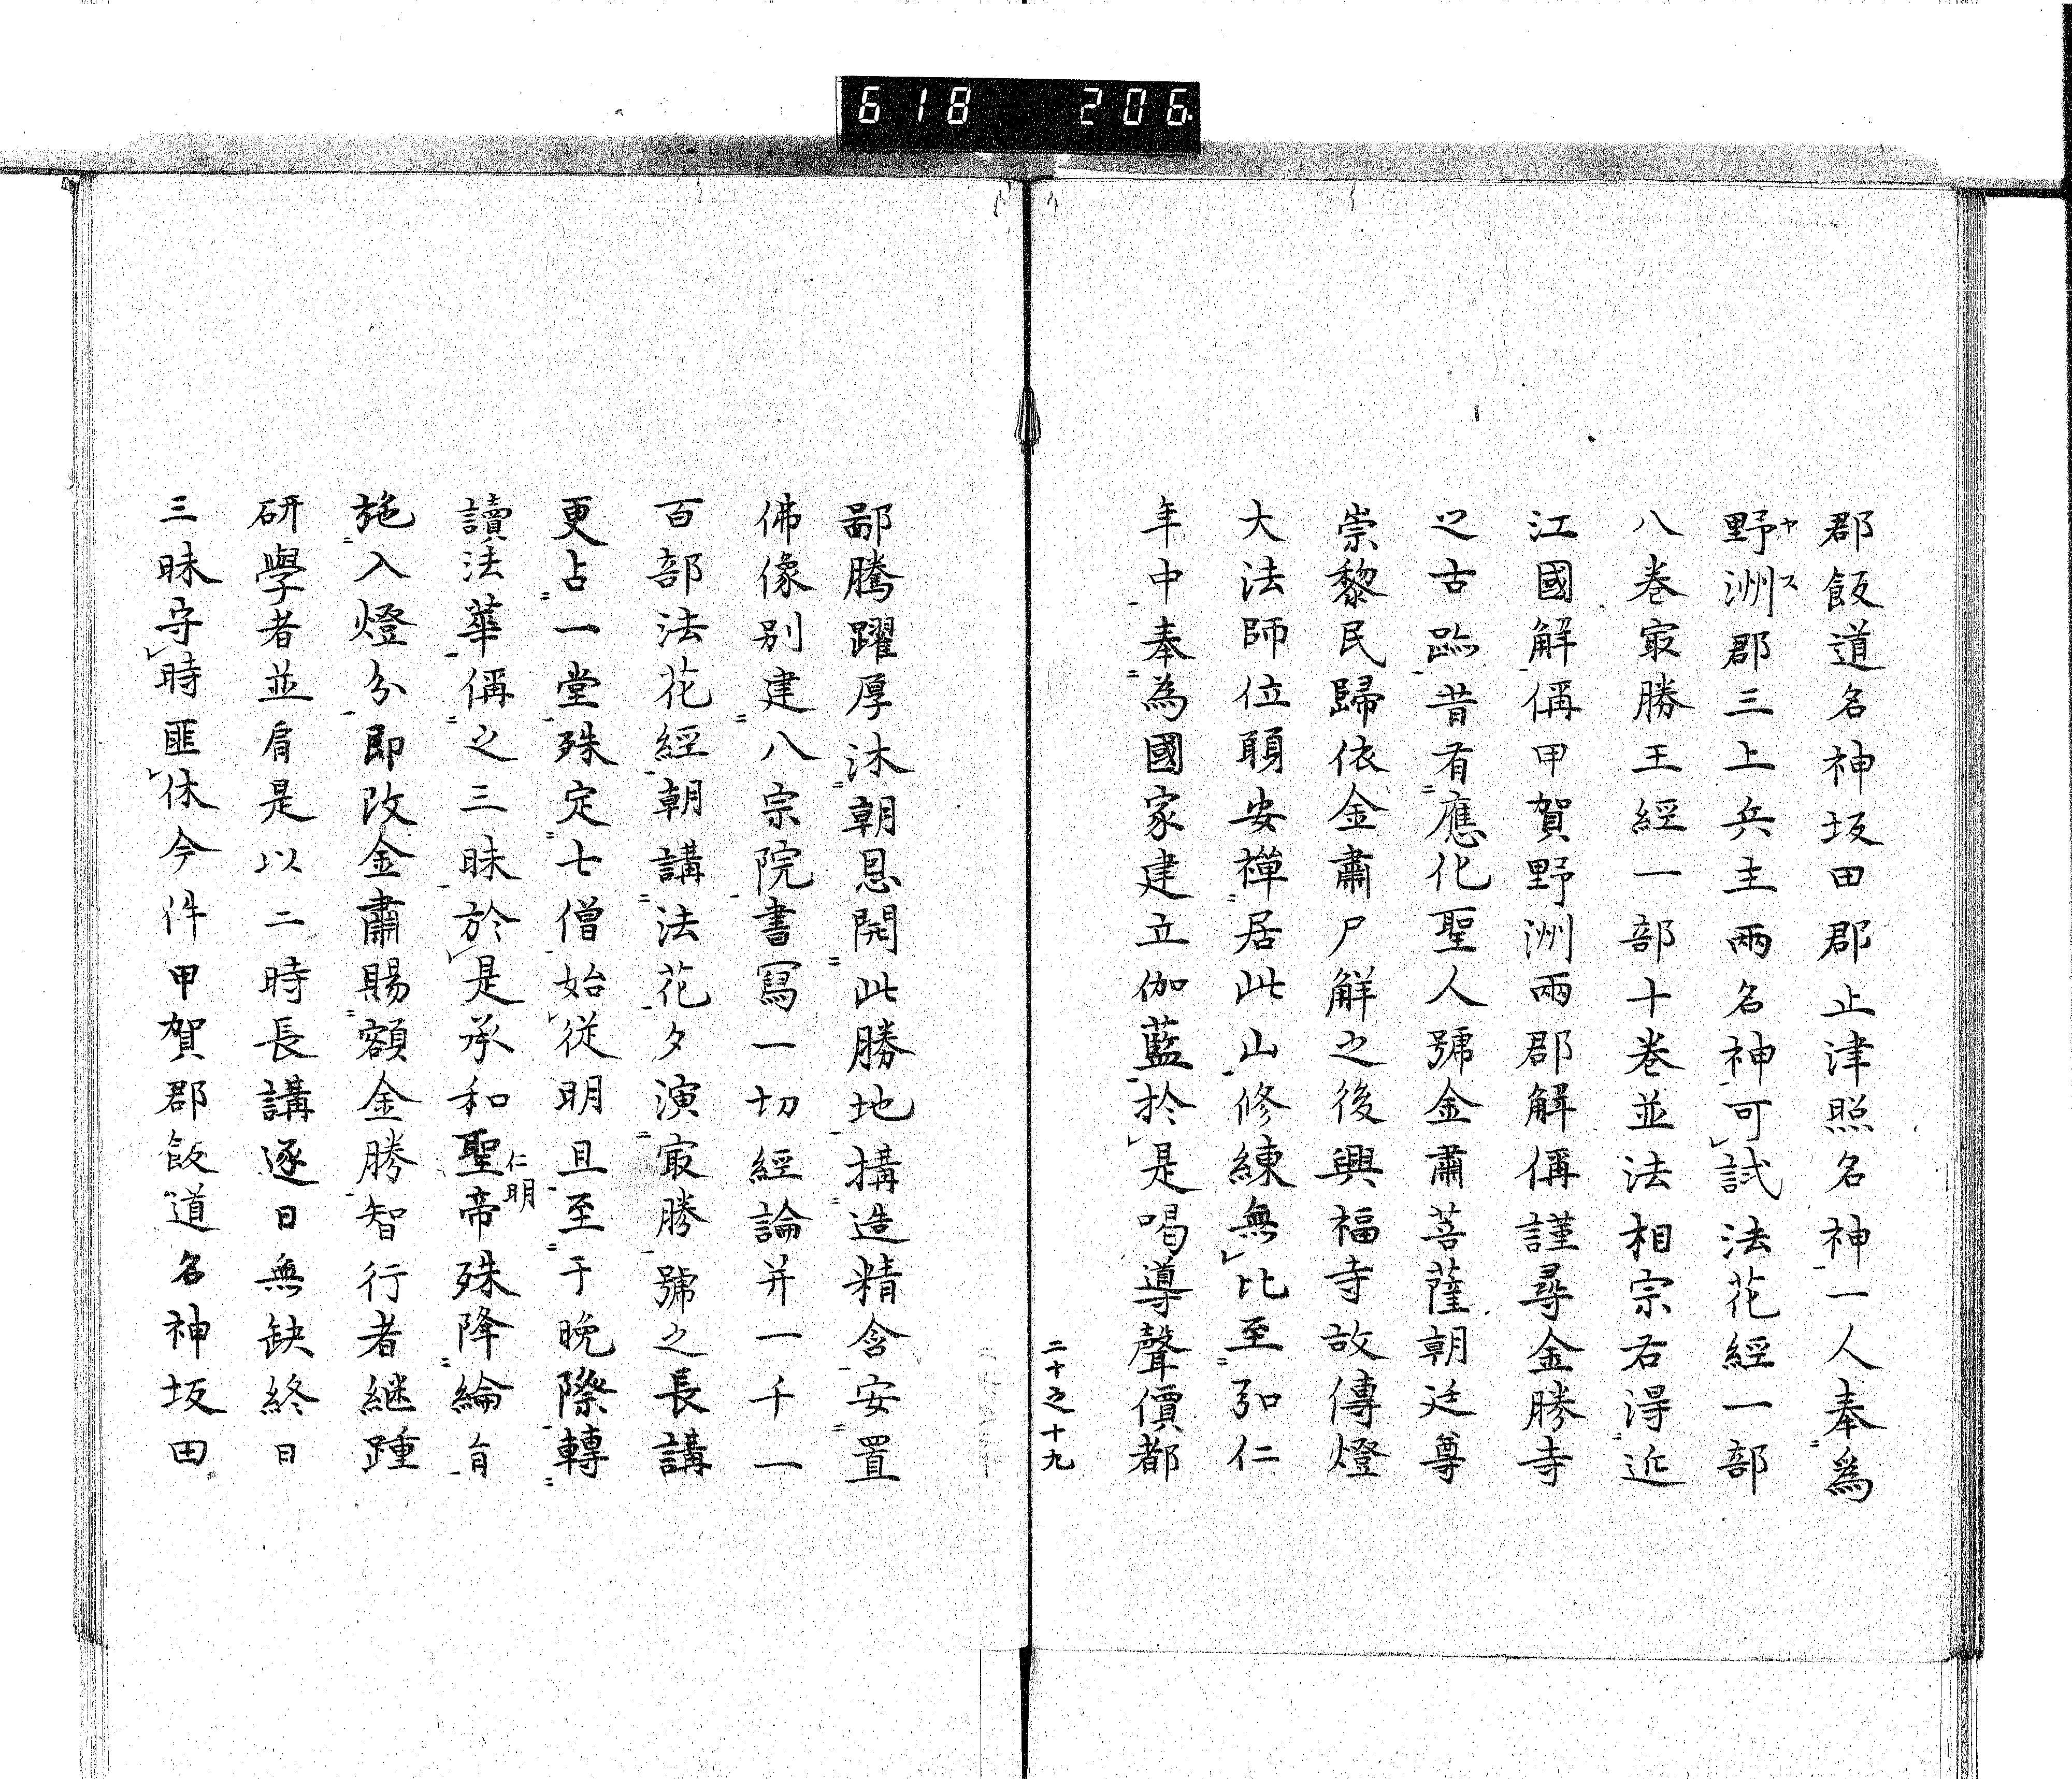 618 206
郡飯道名神坂田郡止津照名神一人奉爲
野洲郡三上兵主兩名神可試法花經一部
ヤス
八巻冣勝王經一部十巻並法相宗右淂近
江國解偁甲賀野洲兩郡解偁謹尋金勝寺
之古跡昔有應化聖人號金肅菩薩朝廷尊
崇黎民歸依金肅尸解之後興福寺故傳燈
大法師位願安禪居此山修練無比至弘仁
年中奉為國家建立伽藍於是唱導聲價都
二十之十九
鄙騰躍厚沐朝恩開此勝地構造精舎安置
佛像别建八宗院書冩一切經論并一千一
百部法花經朝講法花夕演冣勝號之長講
更占一堂殊定七僧始従明旦至于晚際轉
讀法華偁之三昧於是承和聖帝殊降綸旨
仁明
施入燈分即改金肅賜額金勝智行者継踵
研學者並肩是以二時長講逐日無缺終日
三昧守時匪休今件甲賀郡飯道名神坂田